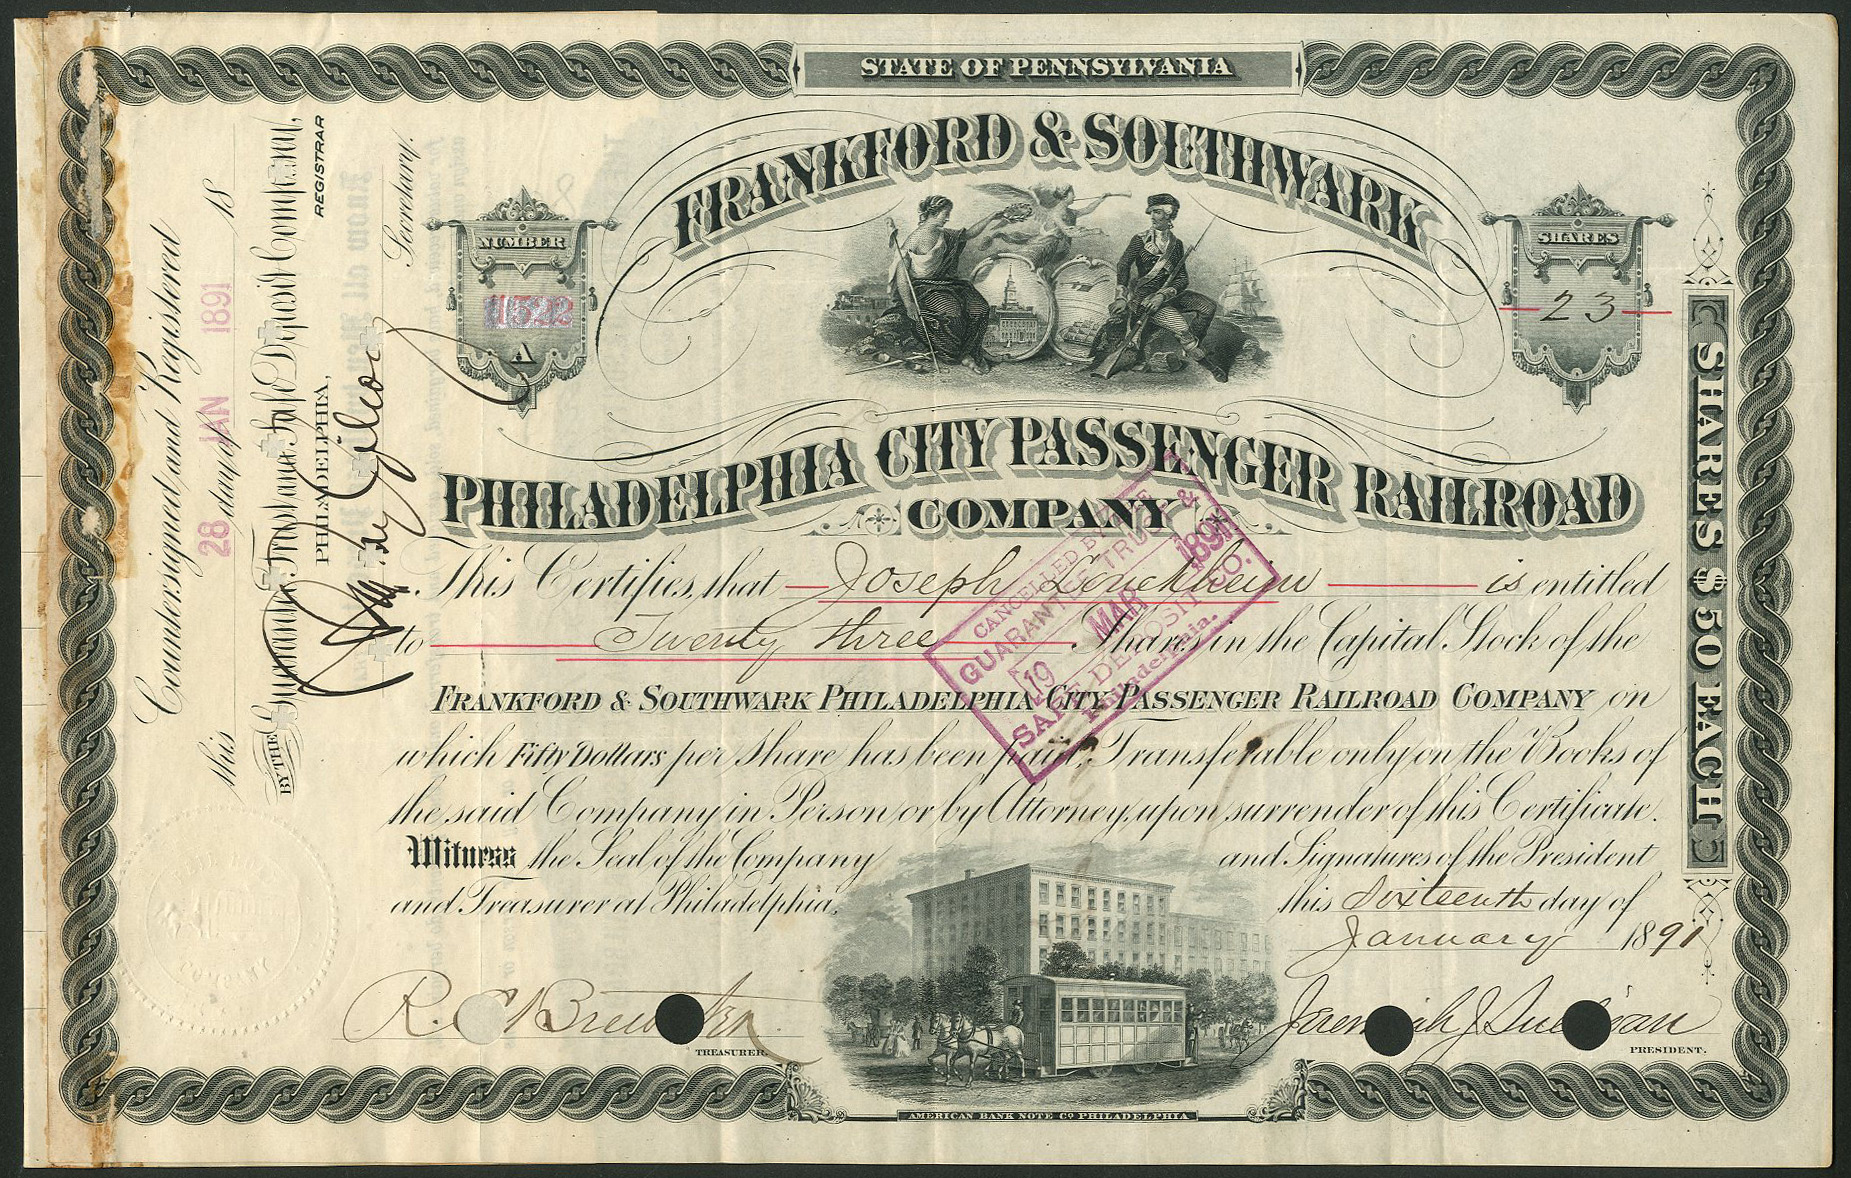 STATE OF PENNSYLVANIA
FRANKFORD & SOUTHWARK
NUMBER
11522
A
SHARES
23
PHILADELPHIA CITY PASSENGER RAILROAD
COMPANY
This Certifies, that Joseph is entitled
to Twenty three Shares in the Capital Stock of the
FRANKFORD & SOUTHWARK PHILADELPHIA CITY PASSENGER RAILROAD COMPANY on
which Fifty Dollars per share has been paid, Transferable only on the Books of
the said Company in Person or by Attorney, upon surrender of this Certificate.
Witness the Seal of the Company and Signatures of the President
and Treasurer at Philadelphia, this Sixteenth day of
January 1891
TREASURER.
Jeremiah J. Sullivan
PRESIDENT.
AMERICAN BANK NOTE CO PHILADELPHIA
SHARES $50 EACH
Countersigned and Registered
this 28 day of JAN 1891 18
BY THE Guarantee Trust and Safe Deposit Company,
PHILADELPHIA,
REGISTRAR
Secretary.
CANCELLED BY THE
GUARANTEE TRUST &
19 MAR 1891
SAFE DEPOSIT CO.
Philadelphia.
COMPANY